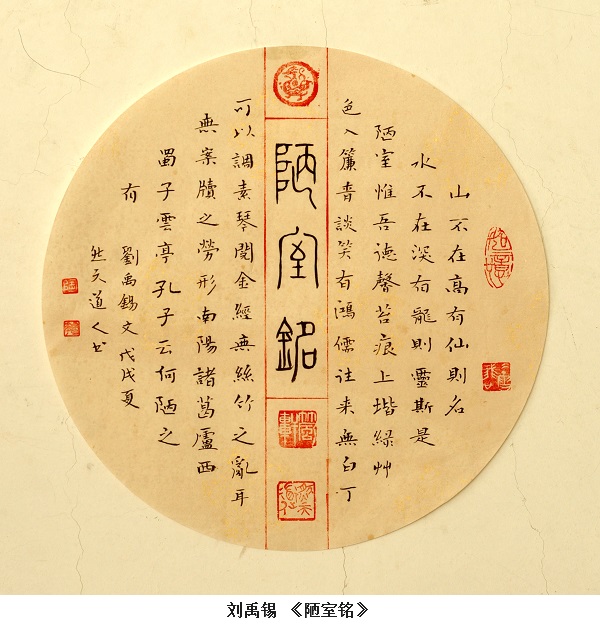 山不在高有仙則名
水不在深有龍則靈斯是
陋室惟吾德馨苔痕上堦綠艸
色入簾青談笑有鴻儒往来無白丁
陋室銘
可以調素琴閱金經無絲竹之亂耳
無案牘之勞形南陽諸葛廬西
蜀子雲亭孔子云何陋之
有 劉禹錫文戊戌夏
然天道人书
刘禹锡 《陋室铭》